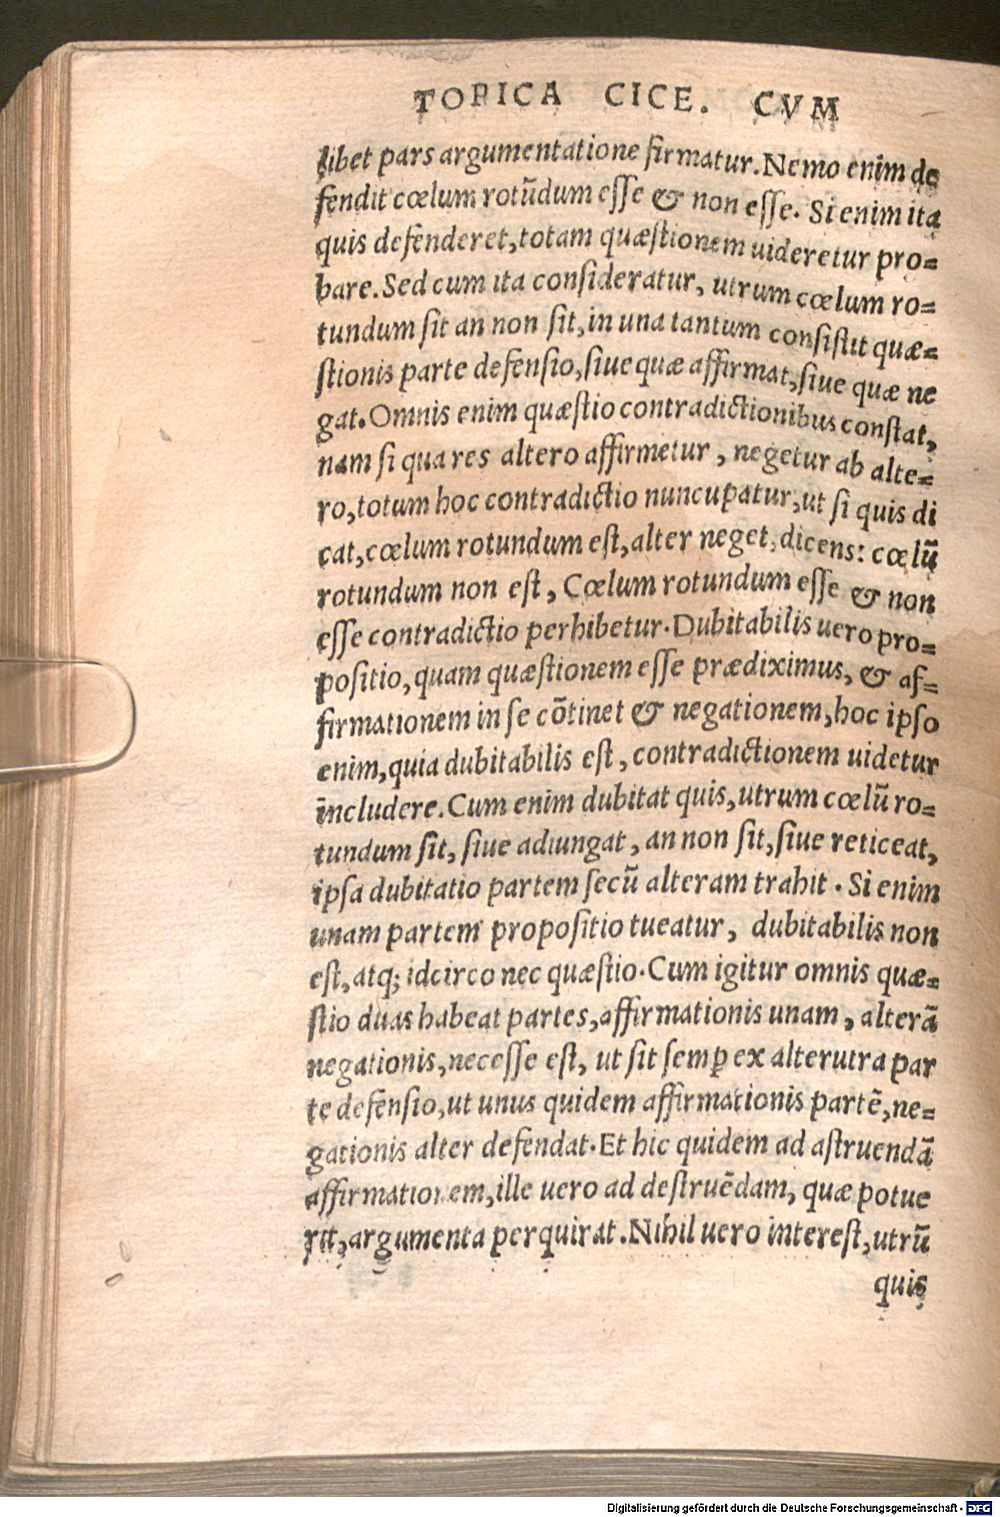 TOPICA CICE. CVM
libet pars argumentatione firmatur. Nemo enim de
fendit cœlum rotūdum esse & non esse. Si enim ita
quis defenderet, totam quæstionem uideretur pro=
bare. Sed cum ita consideratur, utrum cœlum ro=
tundum sit an non sit, in una tantum consistit quæ=
stionis parte defensio, siue quæ affirmat, siue quæ ne
gat. Omnis enim quæstio contradictionibus constat,
nam si qua res altero affirmetur, negetur ab alte=
ro, totum hoc contradictio nuncupatur, ut si quis di
cat, cœlum rotundum est, alter neget, dicens: cœlū
rotundum non est, Cœlum rotundum esse & non
esse contradictio perhibetur. Dubitabilis uero pro=
positio, quam quæstionem esse prædiximus, & af=
firmationem in se cōtinet & negationem, hoc ipso
enim, quia dubitabilis est, contradictionem uidetur
includere. Cum enim dubitat quis, utrum cœlū ro=
tundum sit, siue adiungat, an non sit, siue reticeat,
ipsa dubitatio partem secū alteram trahit. Si enim
unam partem propositio tueatur, dubitabilis non
est, atq; idcirco nec quæstio. Cum igitur omnis quæ=
stio duas habeat partes, affirmationis unam, alterā
negationis, necesse est, ut sit semꝑ ex alterutra par
te defensio, ut unus quidem affirmationis partē, ne=
gationis alter defendat. Et hic quidem ad astruendā
affirmationem, ille uero ad destruēdam, quæ potue
rit, argumenta perquirat. Nihil uero interest, utrū
quis
Digitalisierung gefördert durch die Deutsche Forschungsgemeinschaft - DFG